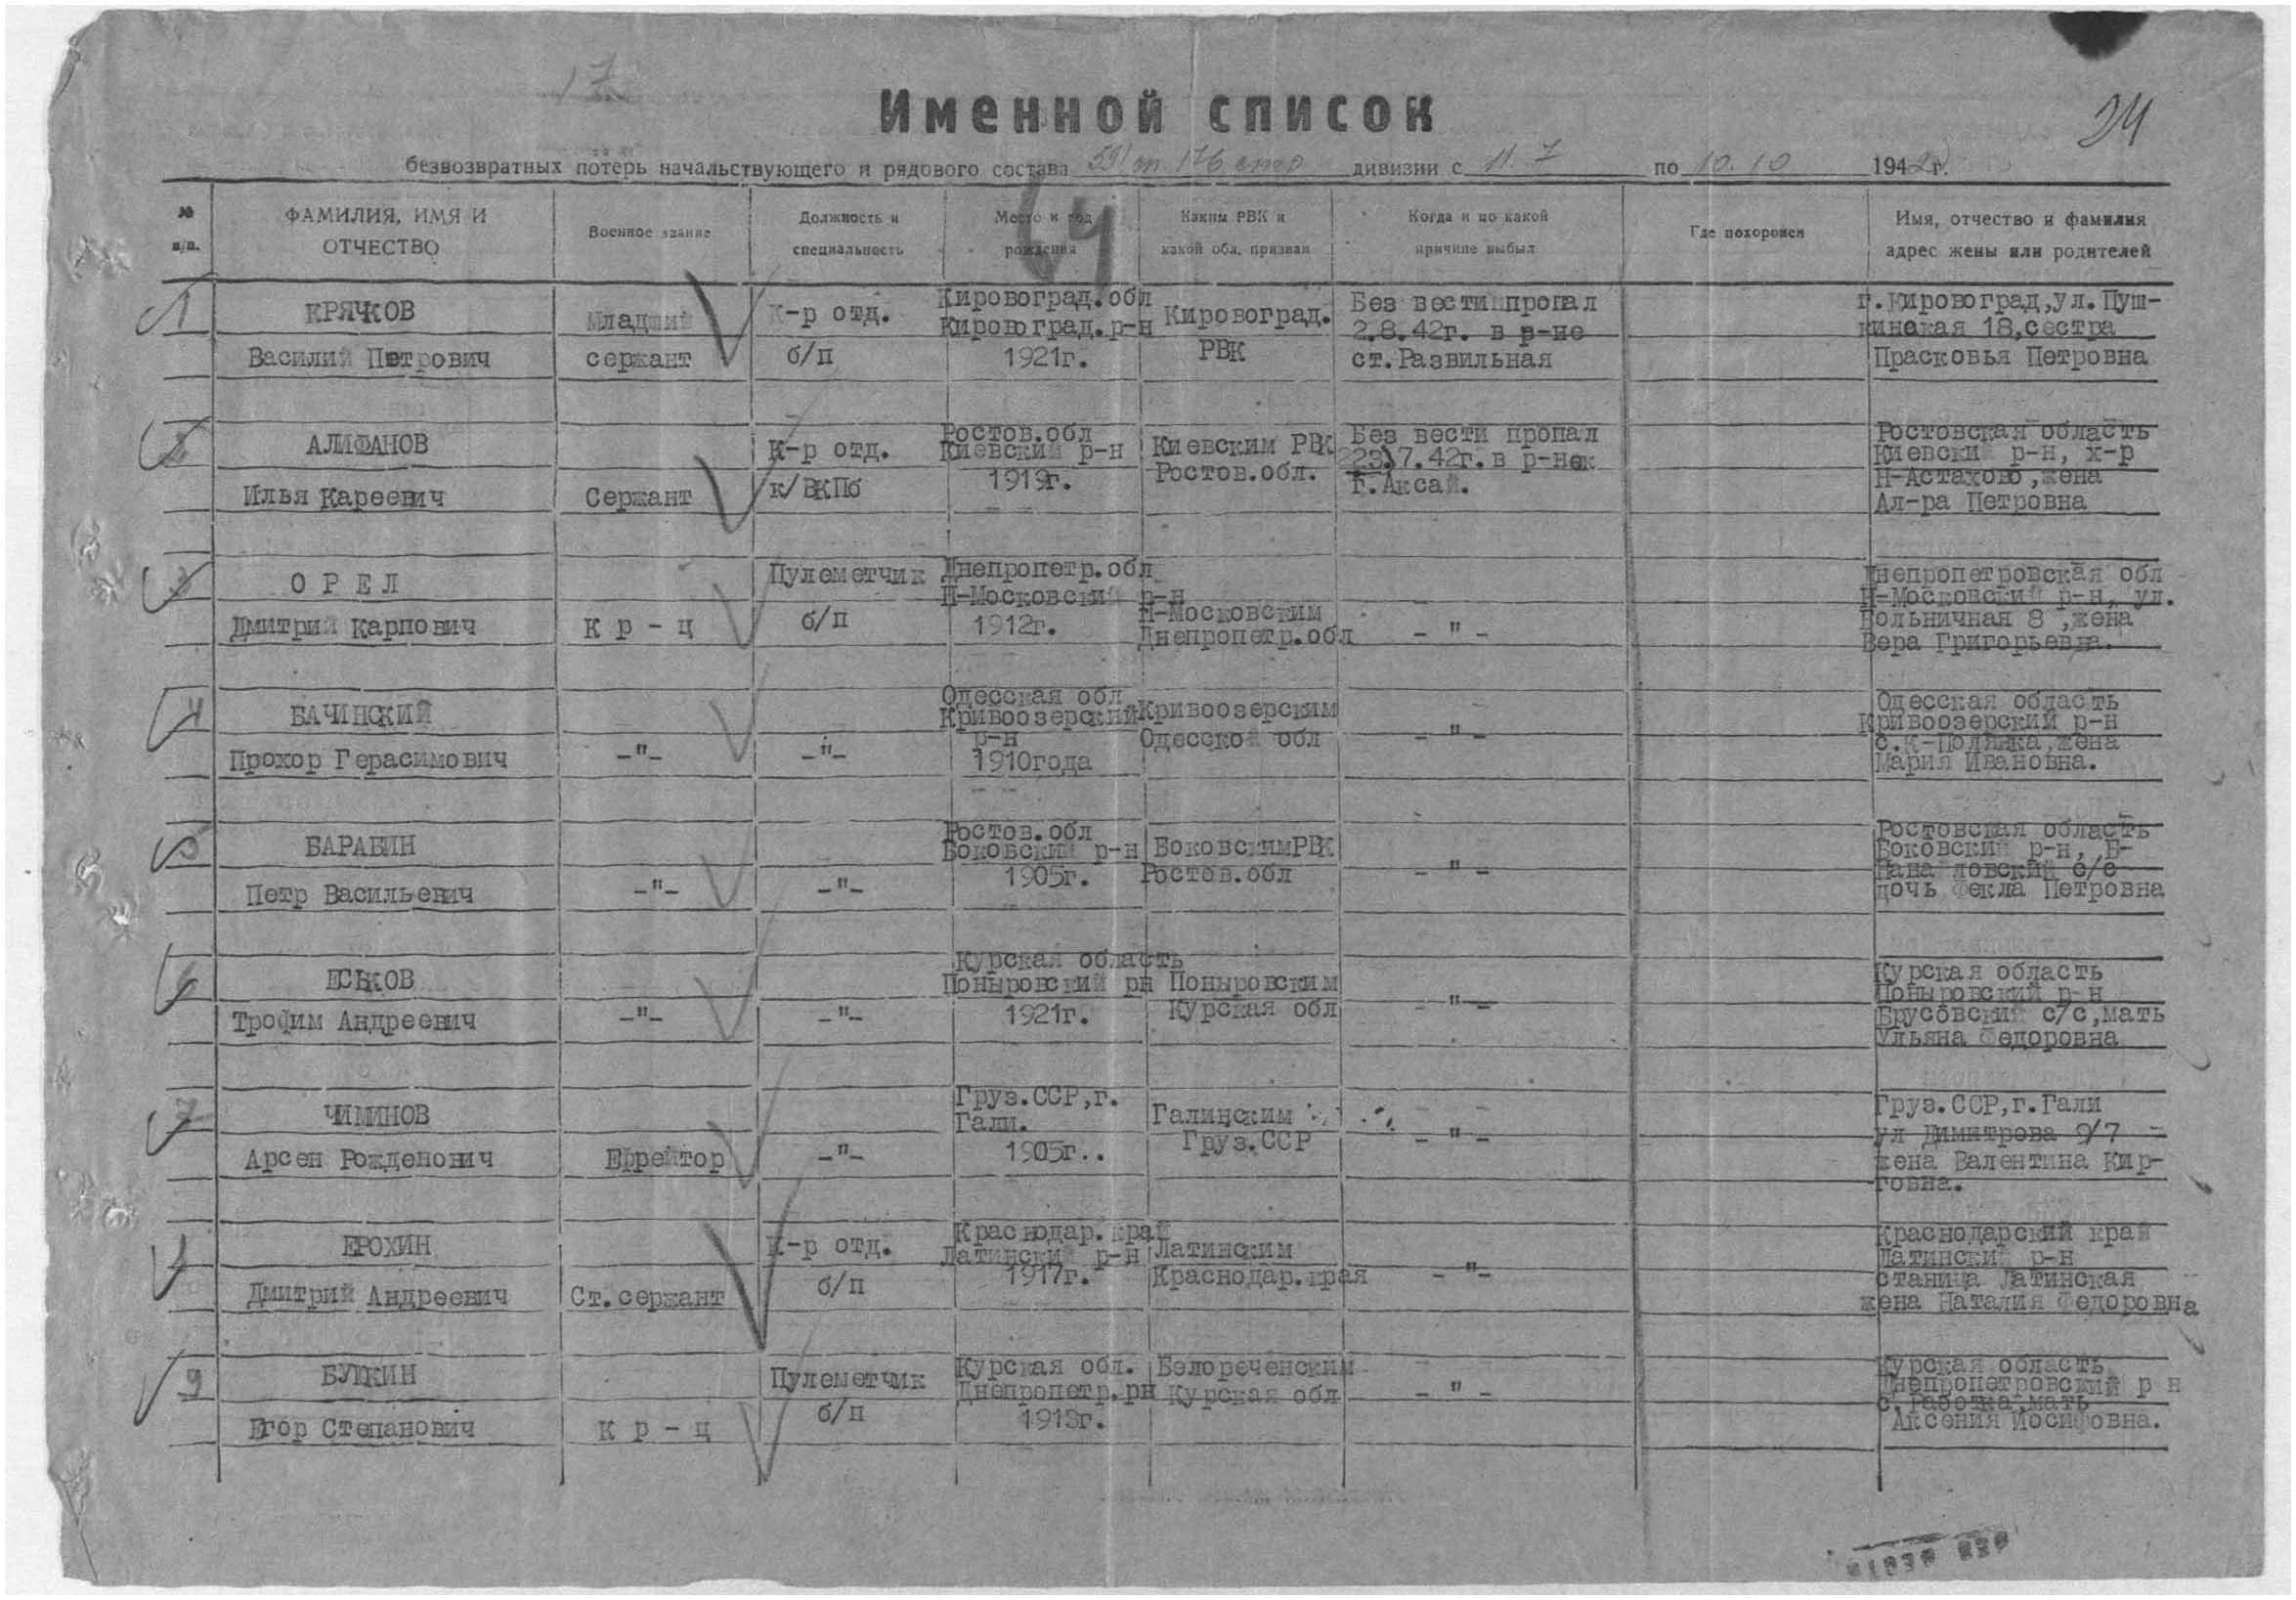 17
Именной список
24
безвозвратных потерь начальствующего и рядового состава 591 176 дивизии с 11.7 по 10.10 1942 г.
№ п/п.
ФАМИЛИЯ, ИМЯ И
ОТЧЕСТВО
Военное звание
Должность и
специальность
Место и год
рождения
Каким РВК и
какой обл. призван
Когда и по какой
причине выбыл
Где похоронен
Имя, отчество и фамилия
адрес жены или родителей
1
КРЯЧКОВ
Василий Петрович
Младший
сержант
К-р отд.
б/п
Кировоград.обл
Кировоград.р-н
1921г.
Кировоград.
РВК
Без вести пропал
2.8.42г. в р-не
ст.Развильная
г.Кировоград,ул.Пуш-
кинская 18,сестра
Прасковья Петровна
2
АЛИФАНОВ
Илья Кареевич
Сержант
К-р отд.
к/ВКПб
Ростов.обл
Киевский р-н
1919г.
Киевским РВК
Ростов.обл.
Без вести пропал
7.42г. в
г.Аксай.
Ростовская область
Киевский р-н, х-р
Н-Астахово,жена
Ал-ра Петровна
3
ОРЕЛ
Дмитрий Карпович
Кр-ц
Пулеметчик
б/п
Днепропетр.обл
Н-Московский р-н
1912г.
Н-Московским
Днепропетр.обл
-"-
Днепропетровская обл
Н-Московский р-н, ул.
Больничная 8,жена
Вера Григорьевна.
4
БАЧИНСКИЙ
Прохор Герасимович
-"-
-"-
Одесская обл
Кривоозерский
р-н
1910года
Кривоозерским
Одесской обл
-"-
Одесская область
Кривоозерский р-н
жена
Мария Ивановна.
5
БАРАБИН
Петр Васильевич
-"-
-"-
Ростов.обл
Боковский р-н
1905г.
БоковскимРВК
Ростов.обл
-"-
Ростовская область
Боковский р-н, Б-
с/с
дочь Фекла Петровна
6
ЕСЬКОВ
Трофим Андреевич
-"-
-"-
Курская область
Поныровский рн
1921г.
Поныровским
Курская обл
-"-
Курская область
Поныровский р-н
Брусовский с/с,мать
Ульяна Федоровна
7
ЧИМИНОВ
Арсен Рожденович
Ефрейтор
-"-
Груз.ССР,г.
Гали.
1905г..
Галинским
Груз.ССР
-"-
Груз.ССР,г.Гали
ул Димитрова 9/7
жена Валентина Кир-
ЕРОХИН
Дмитрий Андреевич
Ст.сержант
К-р отд.
б/п
Краснодар.край
Латинский р-н
1917г.
Латинским
Краснодар.края
-"-
Краснодарский край
Латинский р-н
станица Латинская
жена Наталия Федоровна
9
БУШКИН
Егор Степанович
Кр-ц
Пулеметчик
б/п
Курская обл.
Днепропетр.рн
1913г.
Белореченским
Курская обл
-"-
Курская область
Днепропетровский р н
мать
Аксения Иосифовна.